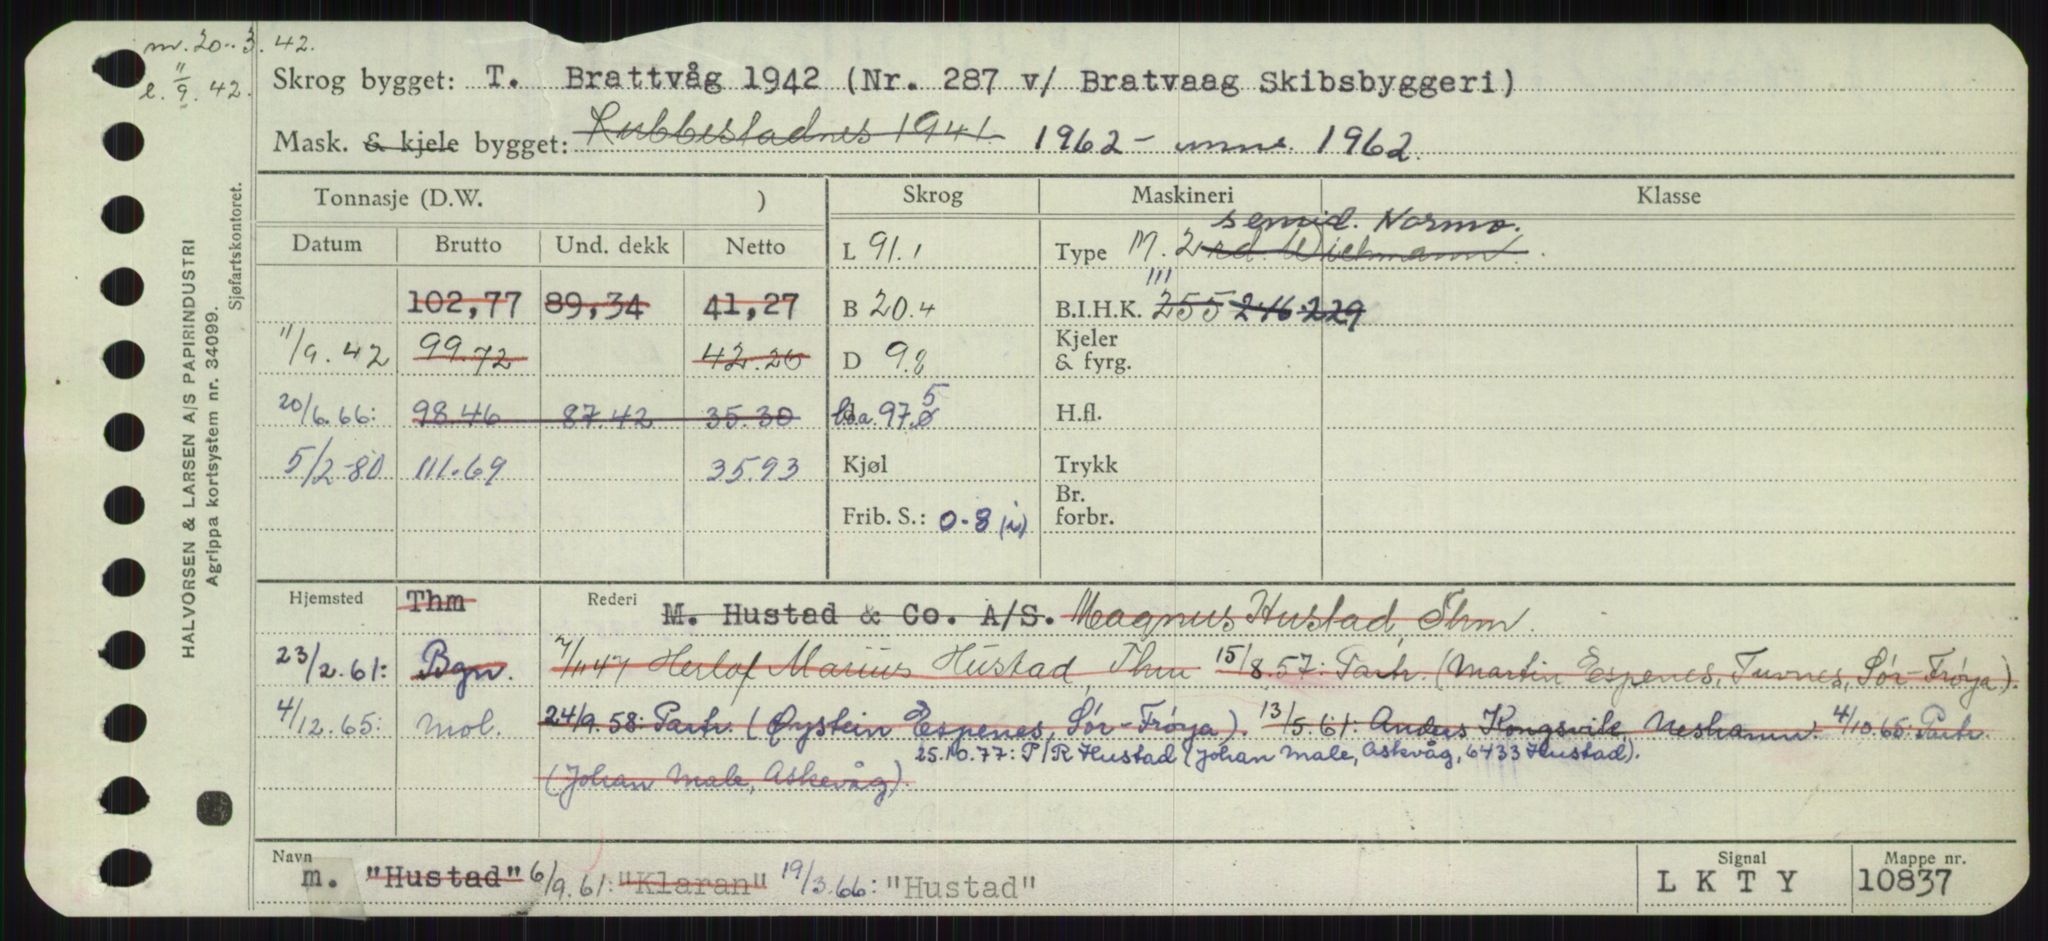 m. 20.3.42.
l. 11/9.42.
Skrog bygget: T. Brattvåg 1942 (Nr. 287 v/ Bratvaag Skibsbyggeri)
Mask. & kjele bygget: Rubbestadnes 1941 1962 - 1962.
Tonnasje (D.W. ) Skrog Maskineri Klasse
Datum Brutto Und. dekk Netto
L 91.1 Type M. 2 rd. Wichmann. semid. Normo.
102,77 89,34 41,27
B 20.4 B.I.H.K. 255 246 229 111
11/9.42 99.72 42.20
D 9.8 Kjeler & fyrg.
20/6.66: 98.46 87.42 35.30
l.o.a. 97.5 H.fl.
5/2-80 111.69 35.93
Kjøl Trykk
Frib. S.: 0-8 (i) Br. forbr.
Hjemsted Thm Rederi M. Hustad & Co. A/S. Magnus Hustad, Thm.
23/2.61: Bgn. 7/11 47 Herlof Marius Hustad, Thm 15/8.57: Partr. (Martin Espenes, Tuvnes, Sør-Frøya).
4/12.65: Mol. 24/9.58: Partr. (Øystein Espenes, Sør-Frøya). 13/5.61: Anders Kongsvik, Neshamn. 4/10.65: Partr.
25.10.77: P/R Hustad (Johan Male, Askvåg, 6433 Hustad).
(Johan Male, Askevåg).
Navn Signal Mappe nr.
m. "Hustad" 6/9.61: "Klaran" 19/3.66: "Hustad" LKTY 10837
HALVORSEN & LARSEN A/S PAPIRINDUSTRI
Agrippa kortsystem nr. 34099.
Sjøfartskontoret.